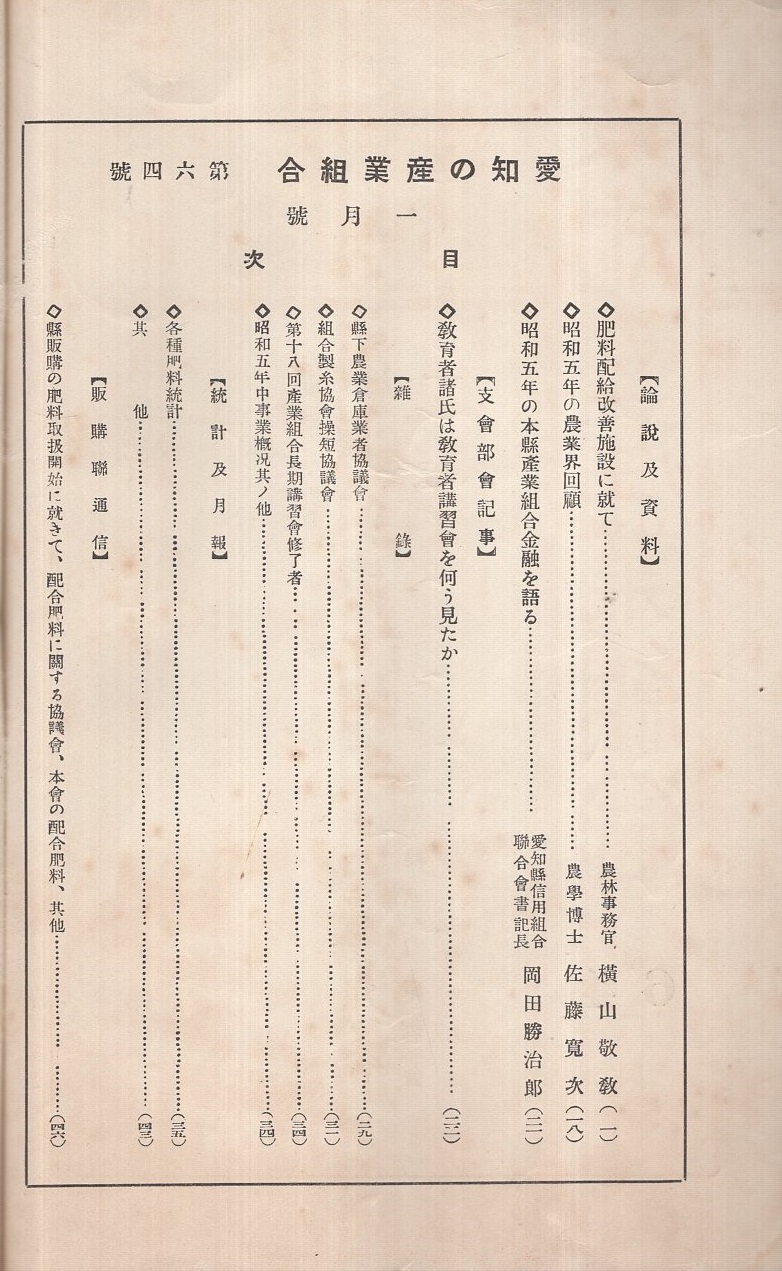 愛知の産業組合　第六四號
一月號
目次
【論說及資料】
◇肥料配給改善施設に就て……農林事務官　橫山敬敎（一）
◇昭和五年の農業界回顧……農學博士　佐藤寬次（一八）
◇昭和五年の本縣產業組合金融を語る……愛知縣信用組合聯合會書記長　岡田勝治郎（二一）
【支會部會記事】
◇敎育者諸氏は敎育者講習會を何う見たか……（二二）
【雜錄】
◇縣下農業倉庫業者協議會……（二九）
◇組合製糸協會操短協議會……（三一）
◇第十八回產業組合長期講習會修了者……（三四）
◇昭和五年中事業槪況其ノ他……（三四）
【統計及月報】
◇各種肥料統計……（三五）
◇其他……（四三）
【販購聯通信】
◇縣販購の肥料取扱開始に就きて、配合肥料に關する協議會、本會の配合肥料、其他……（四六）